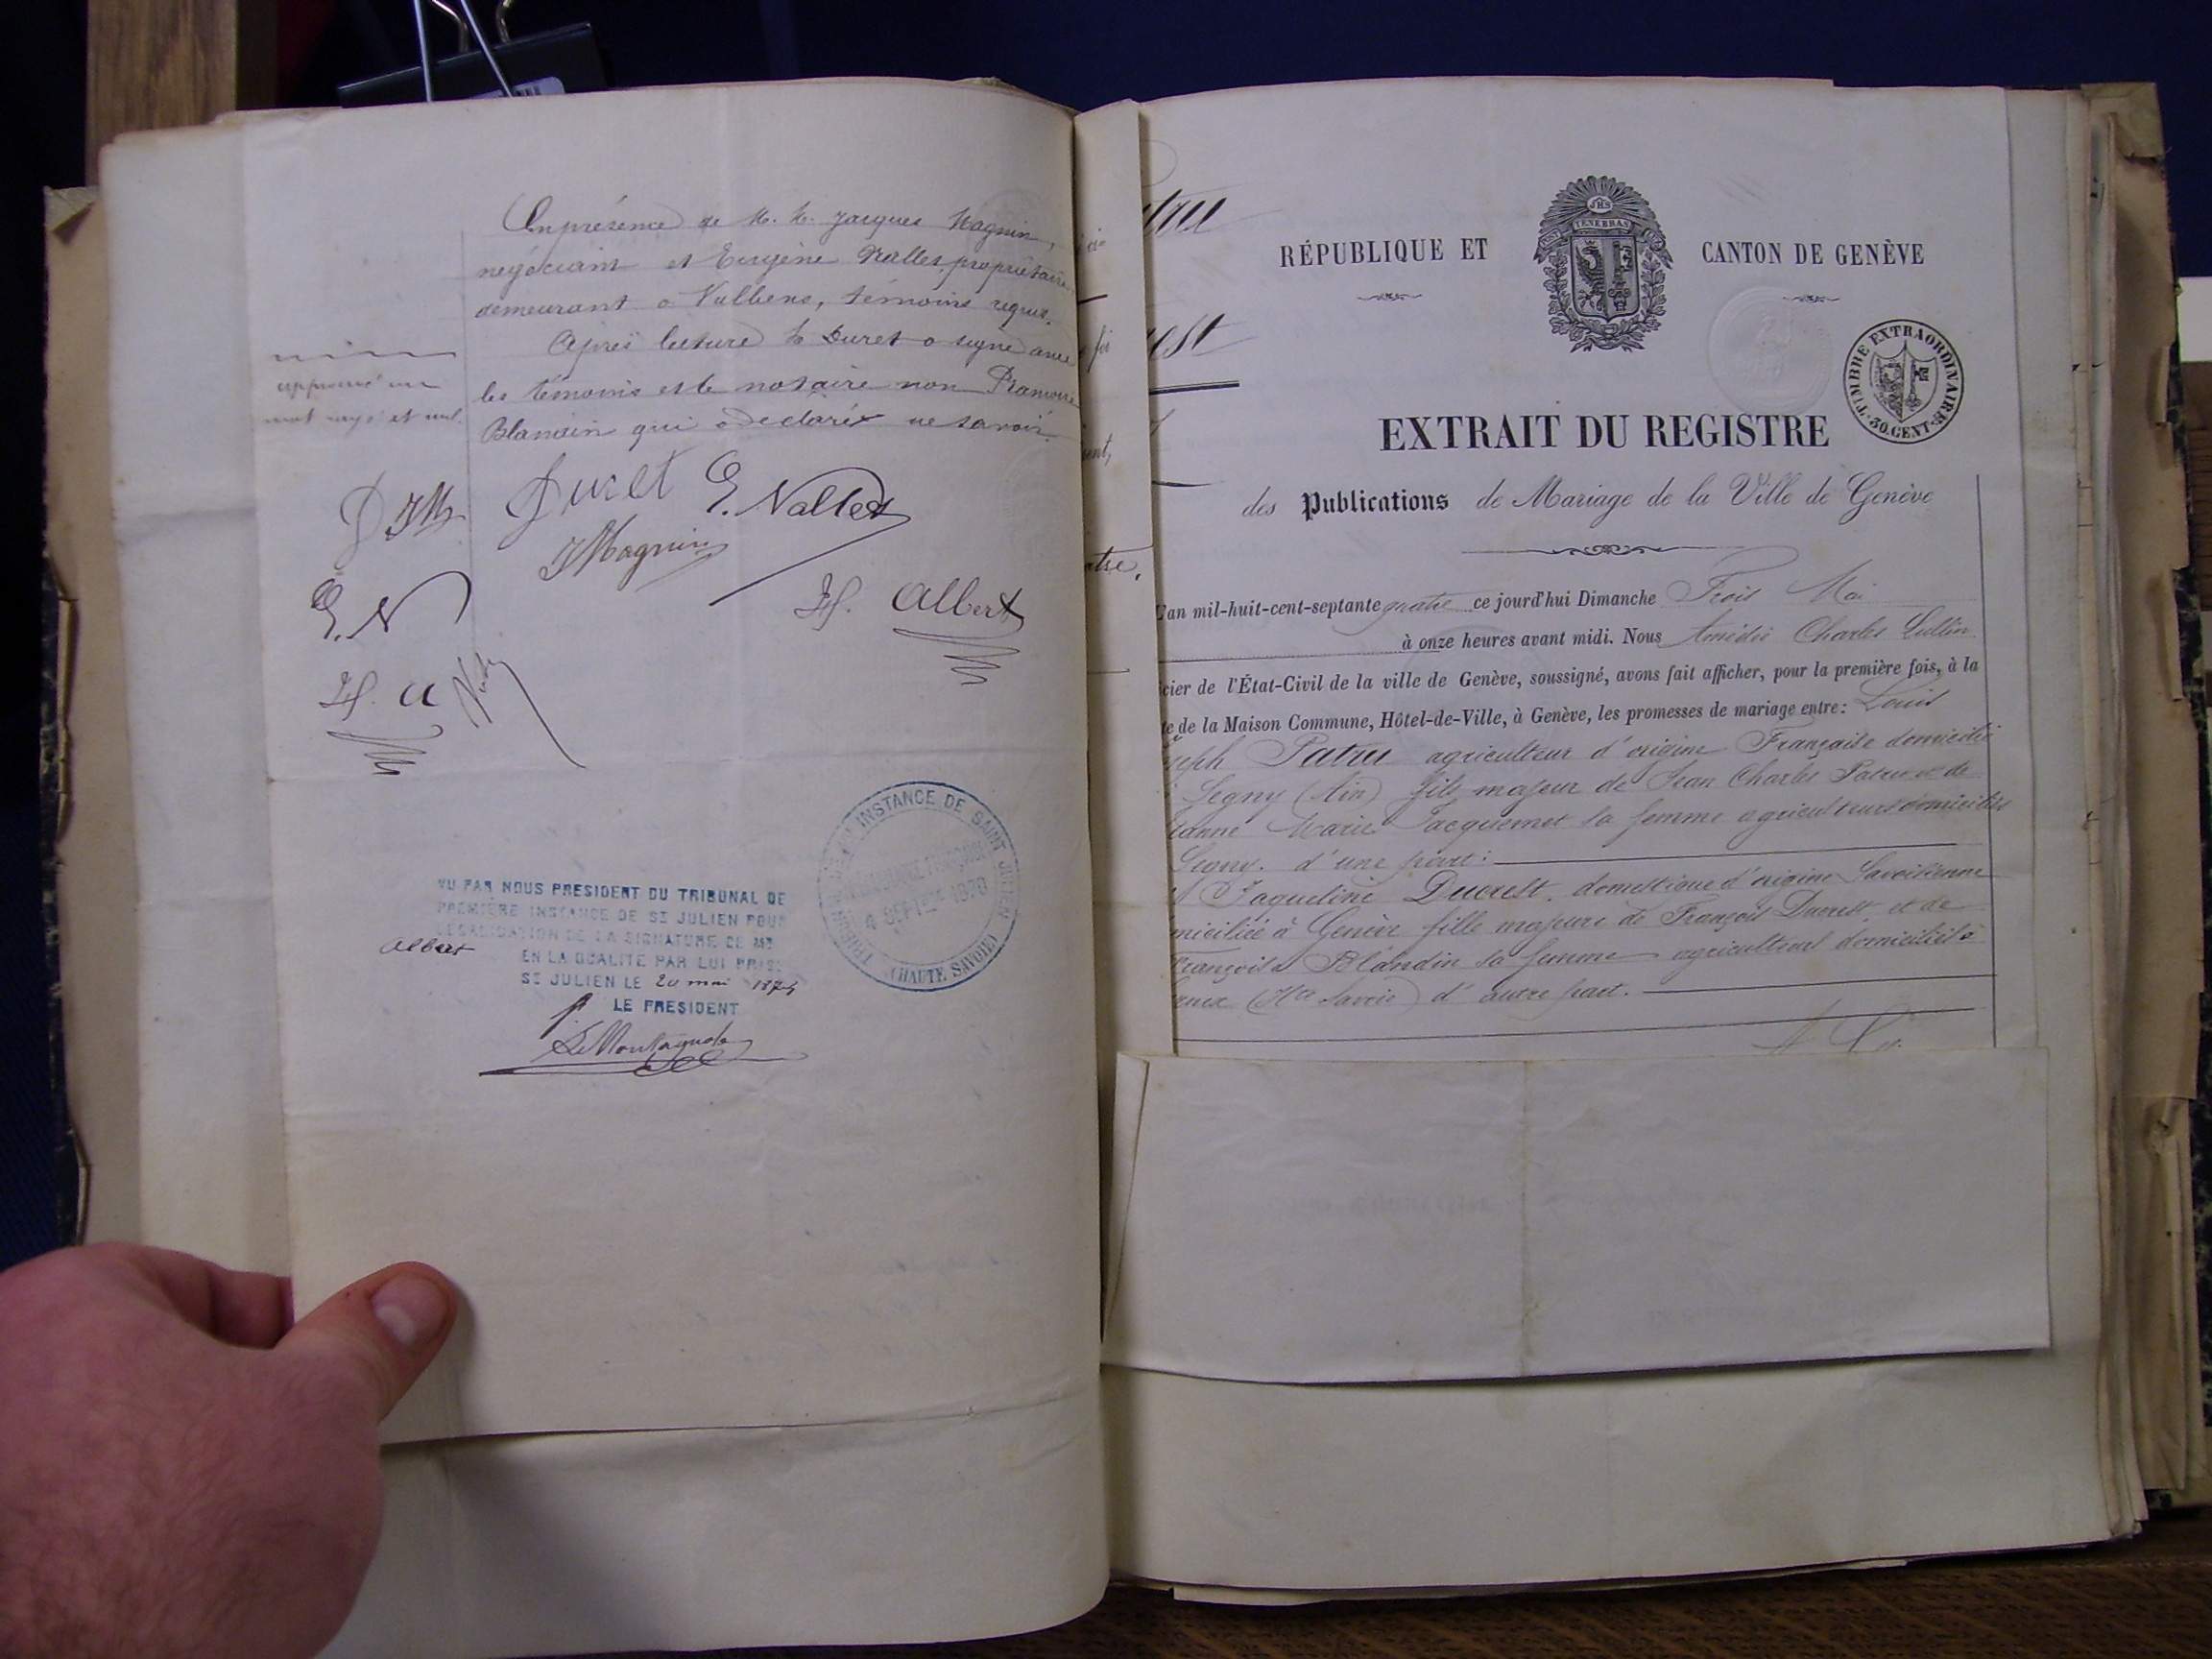 En présence de M. M. Jacques Magnin,
négociant et Eugène Nallet, propriétaire
demeurant à Vulbens, témoins requis.
Après lecture le Duret a signé avec
les témoins et le notaire non Françoise
Blandin qui a déclaré ne savoir.
approuvé un
mot rayé et nul.
Duret E. Nallet
JM
JMagnin
E. N
H. Albert
H. A
VU PAR NOUS PRESIDENT DU TRIBUNAL DE
PREMIÈRE INSTANCE DE ST JULIEN POUR
LEGALISATION DE LA SIGNATURE DE ME
Albert
EN LA QUALITE PAR LUI PRISE
ST JULIEN LE 20 mai 1874
LE PRESIDENT
INSTANCE DE SAINT JULIEN
4 SEPTBRE 1870
(HAUTE SAVOIE)
tru
est
fér
ent,
atre.
RÉPUBLIQUE ET CANTON DE GENÈVE
JHS
POST TENEBRAS LUX
TIMBRE EXTRAORDINAIRE
30. CENT
EXTRAIT DU REGISTRE
des Publications de Mariage de la Ville de Genève
L'an mil-huit-cent-septante quatre ce jourd'hui Dimanche Trois Mai
à onze heures avant midi. Nous Amédée Charles Lullin
cier de l'État-Civil de la ville de Genève, soussigné, avons fait afficher, pour la première fois, à la
te de la Maison Commune, Hôtel-de-Ville, à Genève, les promesses de mariage entre: Louis
seph Patru agriculteur d'origine Française domicilié
Segny (Ain) fils majeur de Jean Charles Patru et de
eanne Marie Jacquemet sa femme agriculteurs domiciliés
Segny. d'une part:
t Jaqueline Ducrest, domestique d'origine Savoisienne
miciliée à Genève fille majeure de François Ducrest, et de
rançoise Blandin sa femme agriculteurs domiciliés à
(Hte Savoie) d'autre part.